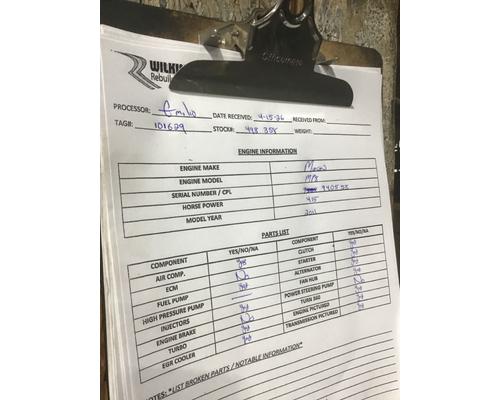 WILKI
Rebuil
Officemate
PROCESSOR: Emilio DATE RECEIVED: 4-15-26 RECEIVED FROM:
TAG#: 101629 STOCK#: 498 358 WEIGHT:
ENGINE INFORMATION
ENGINE MAKE
ENGINE MODEL MP8
SERIAL NUMBER / CPL 940558
HORSE POWER 415
MODEL YEAR 2011
PARTS LIST
COMPONENT YES/NO/NA COMPONENT YES/NO/NA
AIR COMP. Yes CLUTCH
ECM No STARTER
FUEL PUMP ALTERNATOR
HIGH PRESSURE PUMP FAN HUB No
INJECTORS POWER STEERING PUMP
ENGINE BRAKE No TURN 360
TURBO ENGINE PICTURED
EGR COOLER TRANSMISSION PICTURED
NOTES: *LIST BROKEN PARTS / NOTABLE INFORMATION*